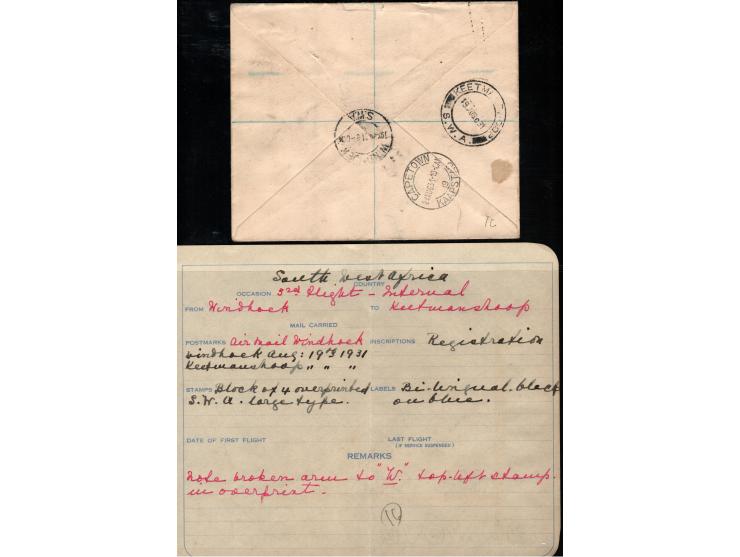 KEETM
19 AUG 31
S.W.A.
S.W.A.
CAPETOWN
KAAPS
TC
South West Africa
COUNTRY
OCCASION 3rd Flight - Internal
FROM Windhoek TO Keetmanshoop
MAIL CARRIED
POSTMARKS Air Mail Windhoek INSCRIPTIONS Registration
Windhoek Aug: 19th 1931
Keetmanshoop " " "
STAMPS Block of 4 overprinted LABELS Bi-lingual. black
S.W.A. large type. on blue.
DATE OF FIRST FLIGHT LAST FLIGHT
(IF SERVICE SUSPENDED)
REMARKS
Note broken arm to "W." top-left stamp.
in overprint.